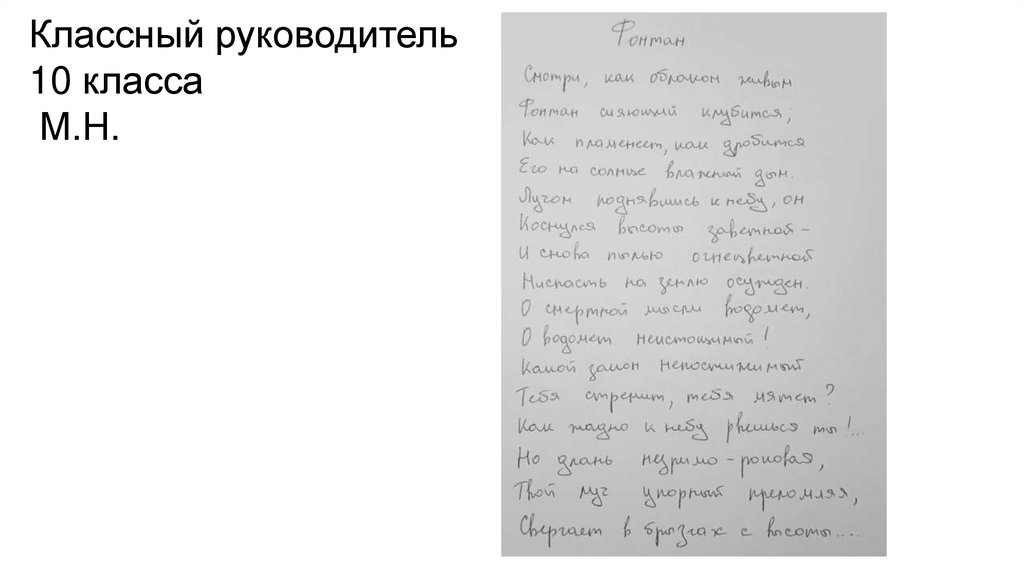 Классный руководитель
10 класса
М.Н.
Фонтан
Смотри, как облаком живым
Фонтан сияющий клубится;
Как пламенеет, как дробится
Его на солнце влажный дым.
Лучом поднявшись к небу, он
Коснулся высоты заветной –
И снова пылью огнецветной
Ниспасть на землю осужден.
О смертной мысли водомет,
О водомет неистощимый!
Какой закон непостижимый
Тебя стремит, тебя мятет?
Как жадно к небу рвешься ты!...
Но длань незримо - роковая,
Твой луч упорный преломляя,
Свергает в брызгах с высоты....